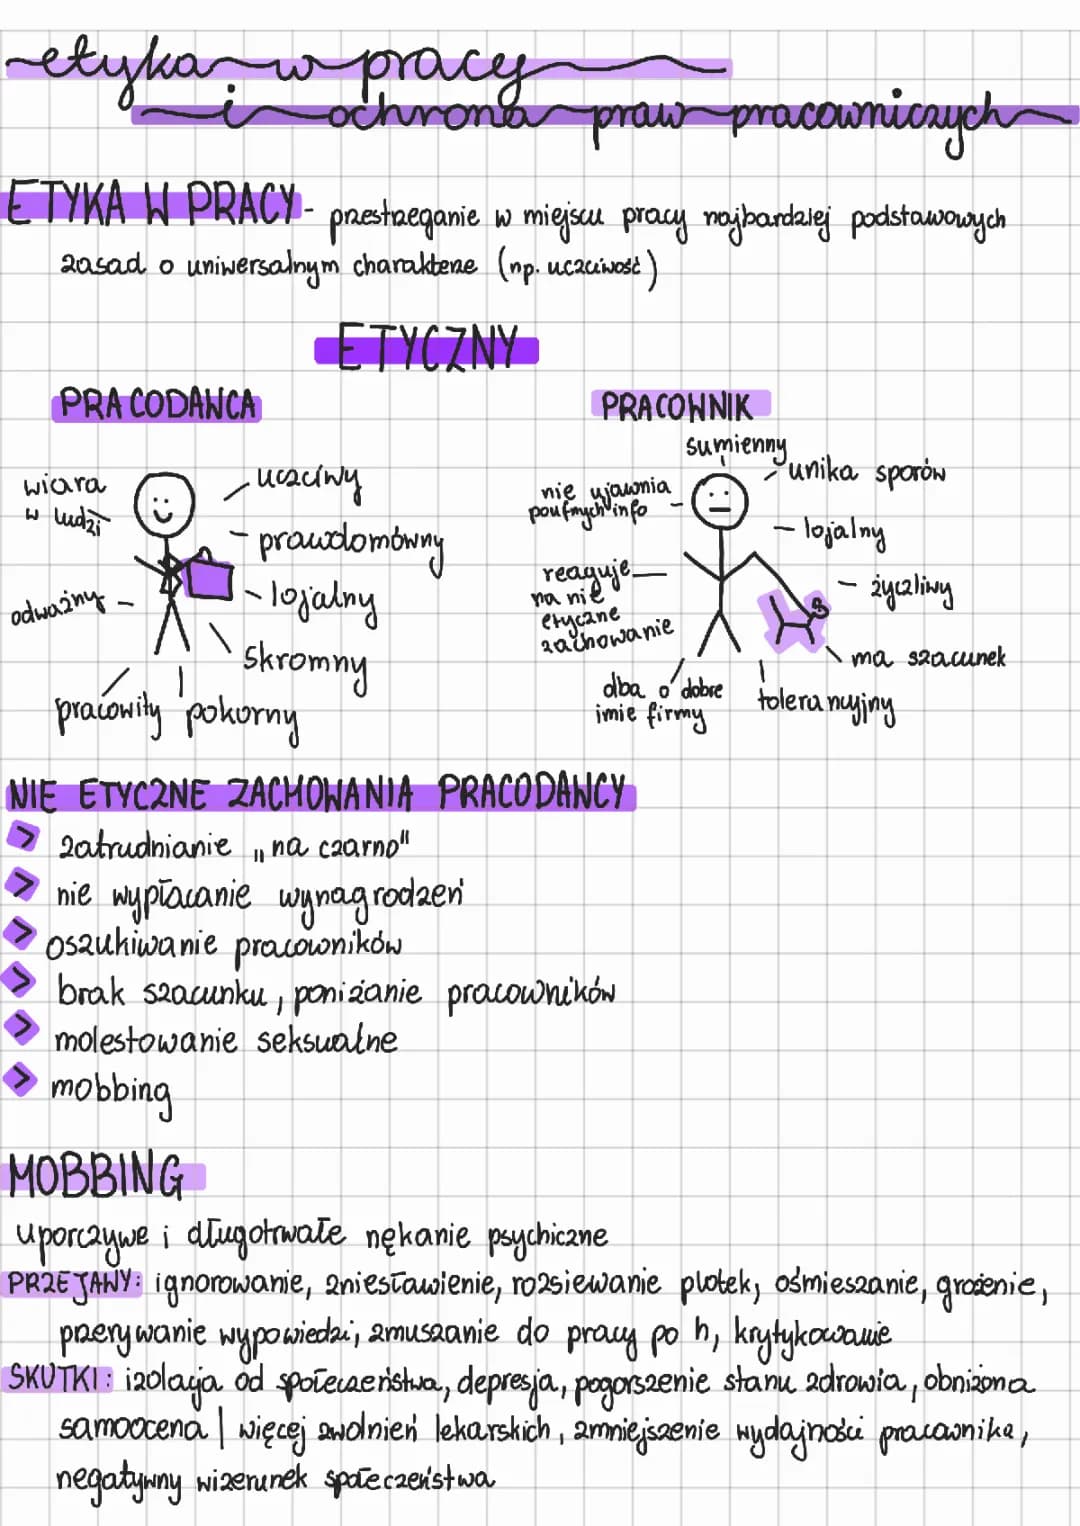 etyka w pracy
i ochrona praw pracowniczych
ETYKA W PRACY - przestrzeganie w miejscu pracy najbardziej podstawowych
zasad o uniwersalnym charakterze (np. uczciwość)
ETYCZNY
PRACODAWCA
wiara
w ludzi
uczciwy
prawdomówny
odważny
lojalny
skromny
pracowity
pokorny
PRACOWNIK
sumienny
unika sporów
nie ujawnia
poufnych info
lojalny
reaguje
na nie
etyczne
zachowanie
życzliwy
ma szacunek
dba o dobre
imie firmy
tolerancyjny
NIE ETYCZNE ZACHOWANIA PRACODAWCY
> zatrudnianie „na czarno"
> nie wypłacanie wynagrodzeń
> oszukiwanie pracowników
> brak szacunku, poniżanie pracowników
> molestowanie seksualne
> mobbing
MOBBING
uporczywe i długotrwałe nękanie psychiczne
PRZEJAWY: ignorowanie, zniesławienie, rozsiewanie plotek, ośmieszanie, grożenie,
przerywanie wypowiedzi, zmuszanie do pracy po h, krytykowanie
SKUTKI: izolacja od społeczeństwa, depresja, pogorszenie stanu zdrowia, obniżona
samoocena | więcej zwolnień lekarskich, zmniejszenie wydajności pracownika,
negatywny wizerunek społeczeństwa